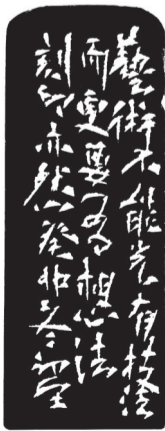 藝術不能光有技法
而更要有想法
刻印亦然癸卯冬